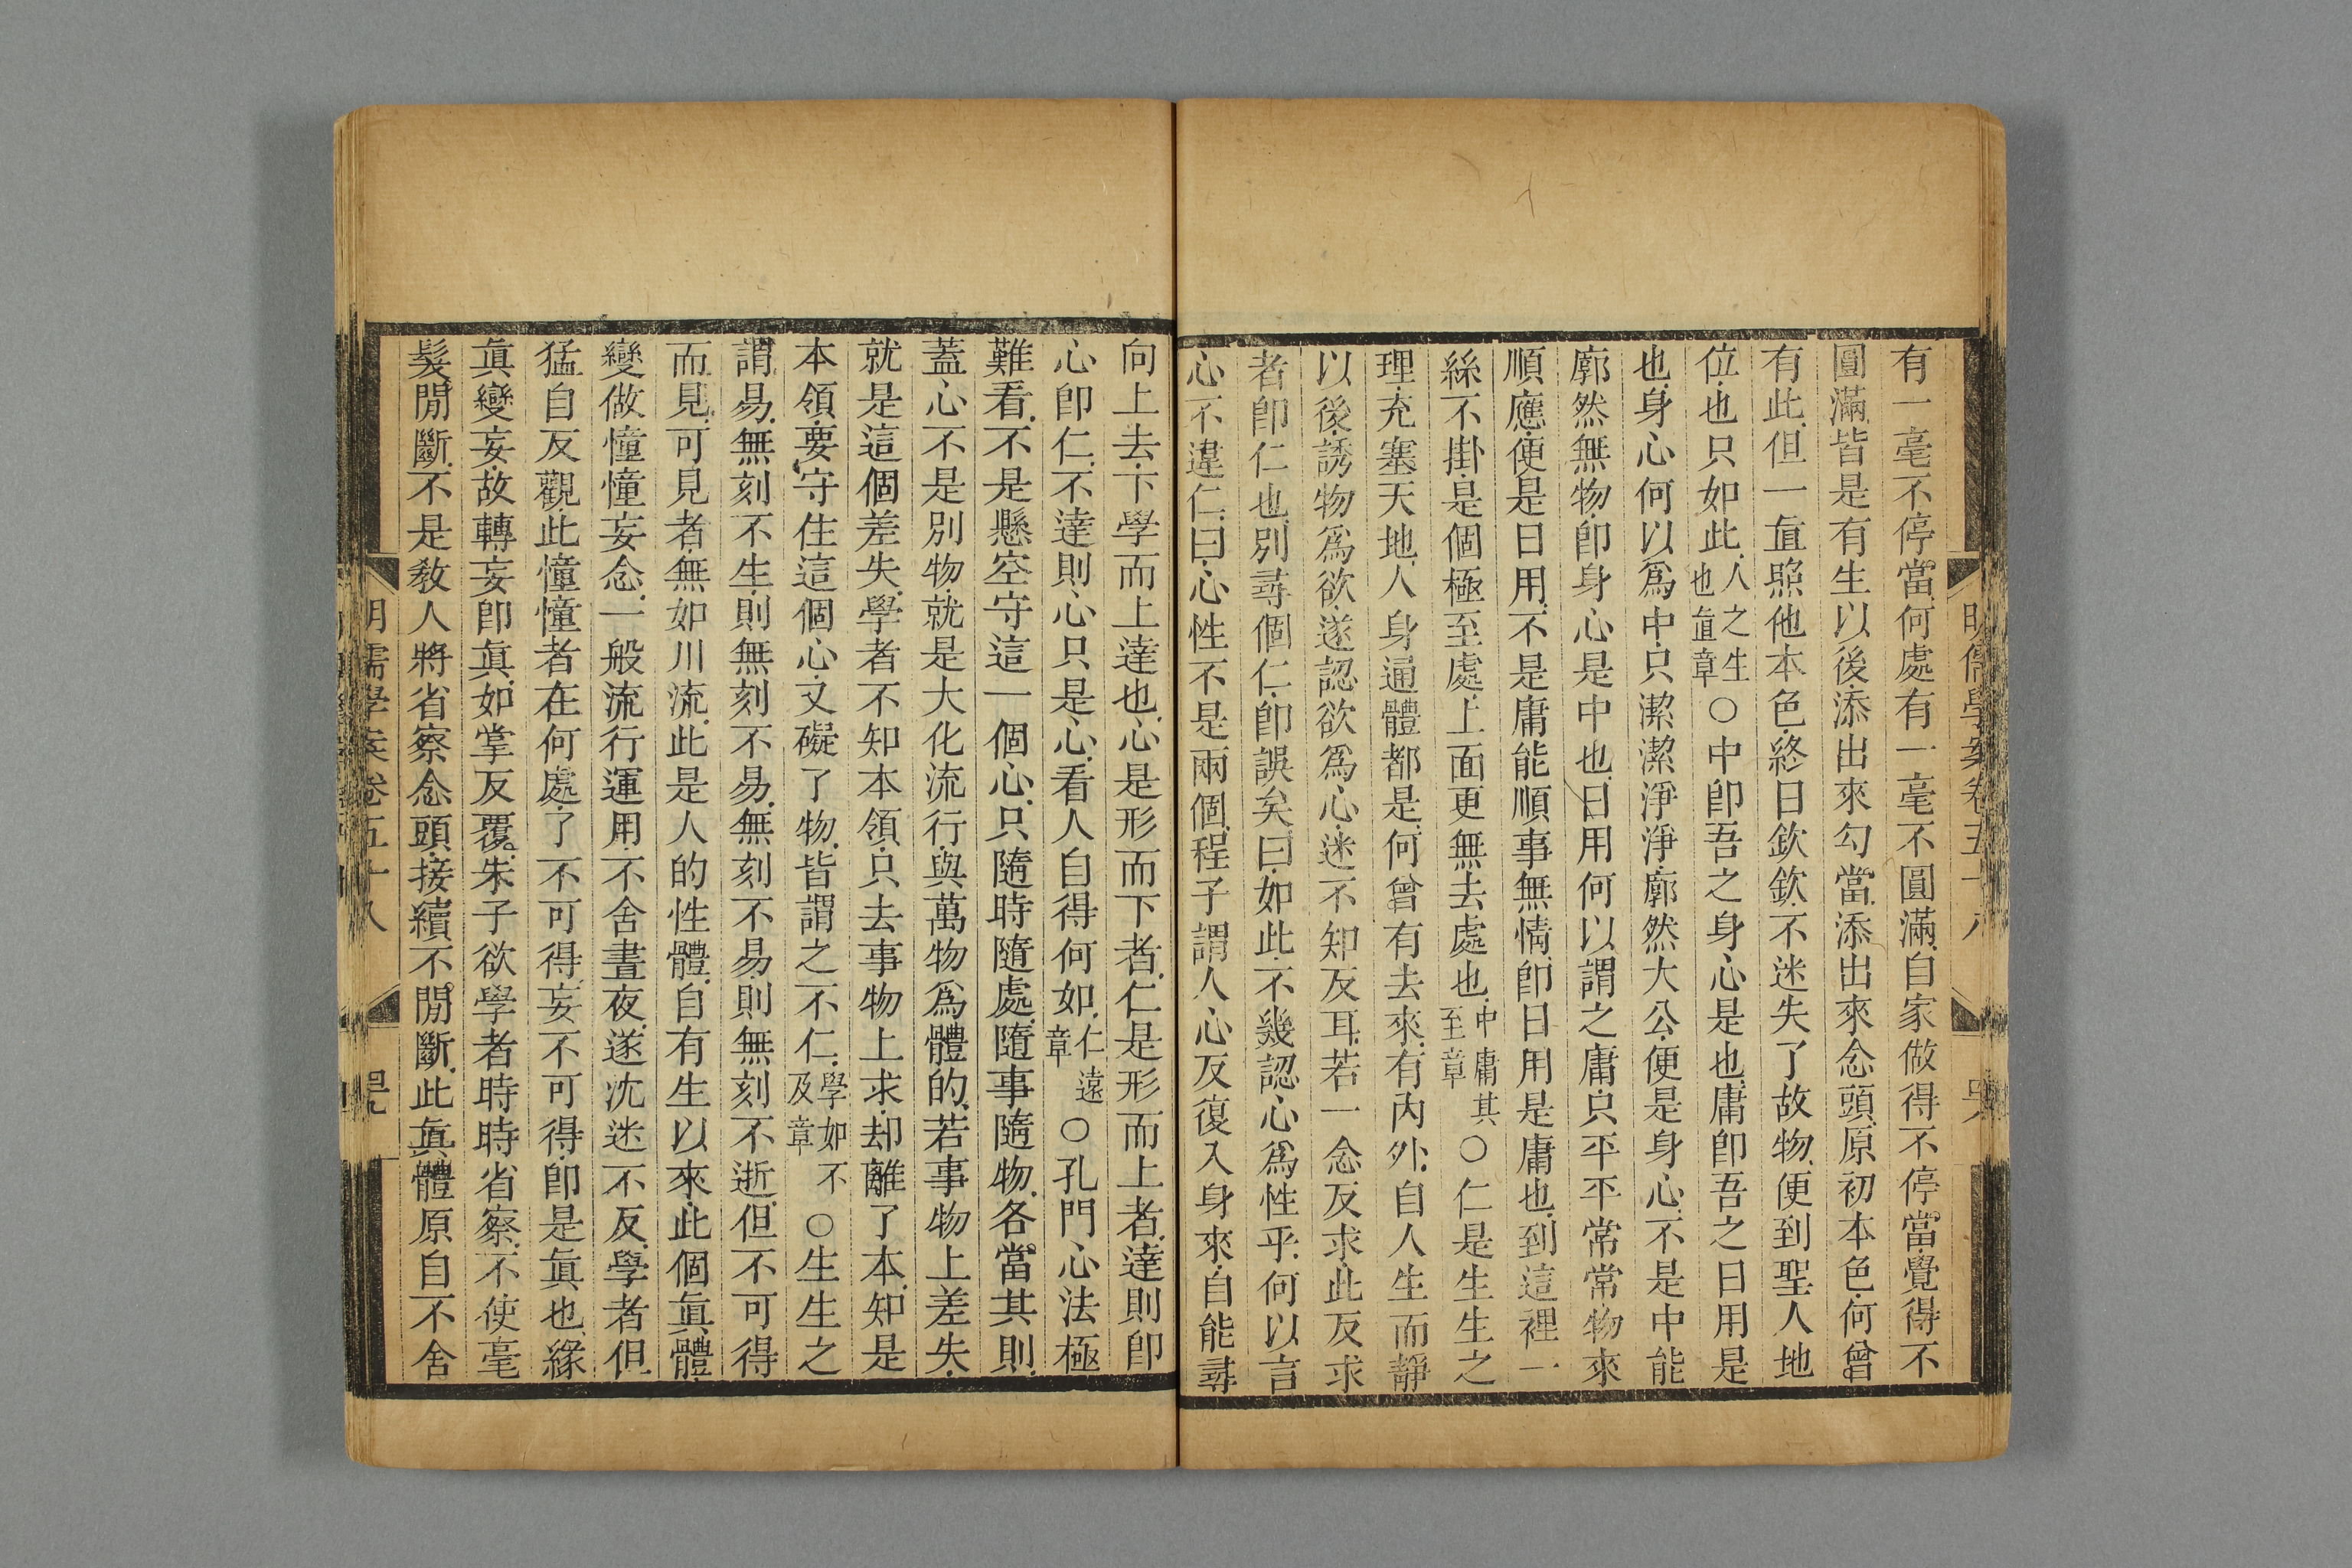 有一毫不停當何處有一毫不圓滿自家做得不停當覺得不
圓滿皆是有生以後添出來勾當添出來念頭原初本色何曾
有此但一直照他本色終日欽欽不迷失了故物便到聖人地
位也只如此人之生也直章○中卽吾之身心是也庸卽吾之日用是
也身心何以爲中只潔潔淨淨廓然大公便是身心不是中能
廓然無物卽身心是中也日用何以謂之庸只平平常常物來
順應便是日用不是庸能順事無情卽日用是庸也到這裡一
絲不掛是個極至處上面更無去處也中庸其至章○仁是生生之
理充塞天地人身通體都是何曾有去來有內外自人生而靜
以後誘物爲欲遂認欲爲心迷不知反耳若一念反求此反求
者卽仁也別尋個仁卽誤矣曰如此不幾認心爲性乎何以言
心不違仁曰心性不是兩個程子謂人心反復入身來自能尋
向上去下學而上達也心是形而下者仁是形而上者達則卽
心卽仁不達則心只是心看人自得何如仁遠章○孔門心法極
難看不是懸空守這一個心只隨時隨處隨事隨物各當其則
蓋心不是別物就是大化流行與萬物爲體的若事物上差失
就是這個差失學者不知本領只去事物上求却離了本知是
本領要守住這個心又礙了物皆謂之不仁學如不及章○生生之
謂易無刻不生則無刻不易無刻不易則無刻不逝但不可得
而見可見者無如川流此是人的性體自有生以來此個眞體
變做憧憧妄念一般流行運用不舍晝夜遂沈迷不反學者但
猛自反觀此憧憧者在何處了不可得妄不可得卽是眞也緣
眞變妄故轉妄卽眞如掌反覆朱子欲學者時時省察不使毫
髮間斷不是敎人將省察念頭接續不間斷此眞體原自不舍
明儒學案卷五十八